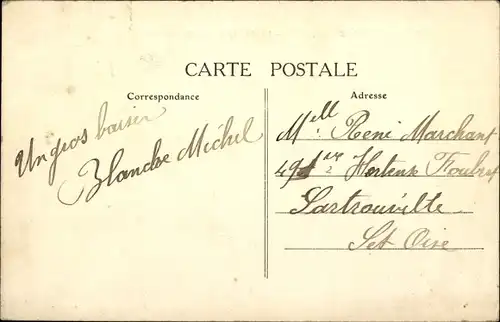 CARTE POSTALE
Correspondance
Un gros baiser
Blanche Michel
Adresse
Mell Reni Marchant
Hortense Foubert
Sartrouville
Set Oise